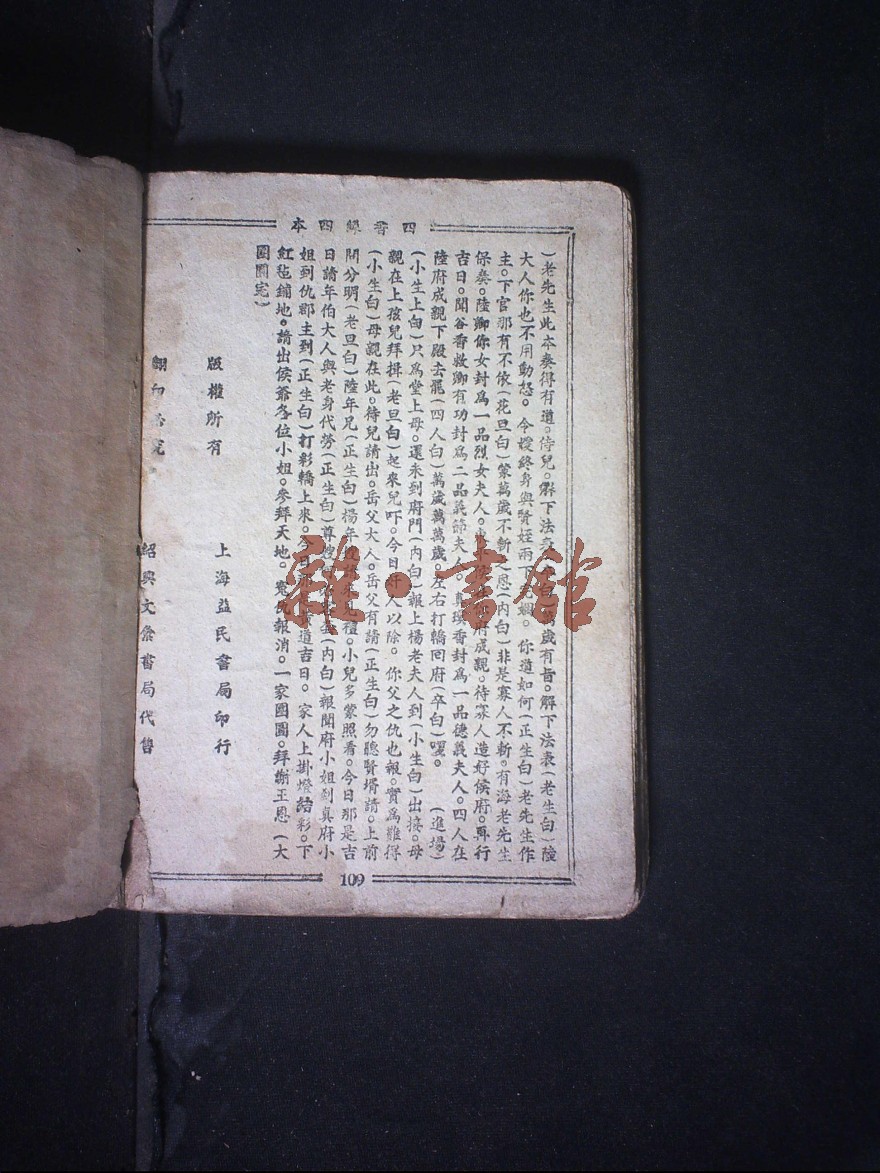 四香緣四本
)老先生此本奏得有道。侍兒。解下法衣 萬歲有旨。解下法衣(老生白)陸
大人你也不用動怒。令嫒終身與賢姪兩下 姻。你道如何(正生白)老先生作
主。下官那有不依(花旦白)蒙萬歲不斬之恩(內白)非是寡人不斬。有海老先生
保奏。陸卿你女封爲一品烈女夫人。 府成親。待寡人造好侯府。再行
吉日。聞谷香救卿有功封爲二品義節夫人。真瓊香封爲一品德義夫人。四人在
陸府成親下殿去罷(四人白)萬歲萬萬歲。左右打轎回府(卒白)喔。 (進場)
(小生上白)只爲堂上母。還未到府門(內白)報上楊老夫人到(小生白)出接。母
親在上孩兒拜揖(老旦白)起來兒吓。今日奸人以除。你父之仇也報。實爲難得
(小生白)母親在此。待兒請出。岳父大人。岳父有請(正生白)勿聽賢壻請。上前
問分明(老旦白)陸年兄(正生白)楊年 禮。小兒多蒙照看。今日那是吉
日請年伯大人與老身代勞(正生白)尊 (內白)報聞府小姐到真府小
姐到仇郡主到(正生白)打彩轎上來。今日 道吉日。家人上掛燈結彩。下
紅毡鋪地。請出侯爺各位小姐。參拜天地。冤仇報消。一家團圓。拜謝王恩 (大
團圓完)
版權所有 上海益民書局印行
翻印必究 紹興文粂書局代售
109
雜·書館